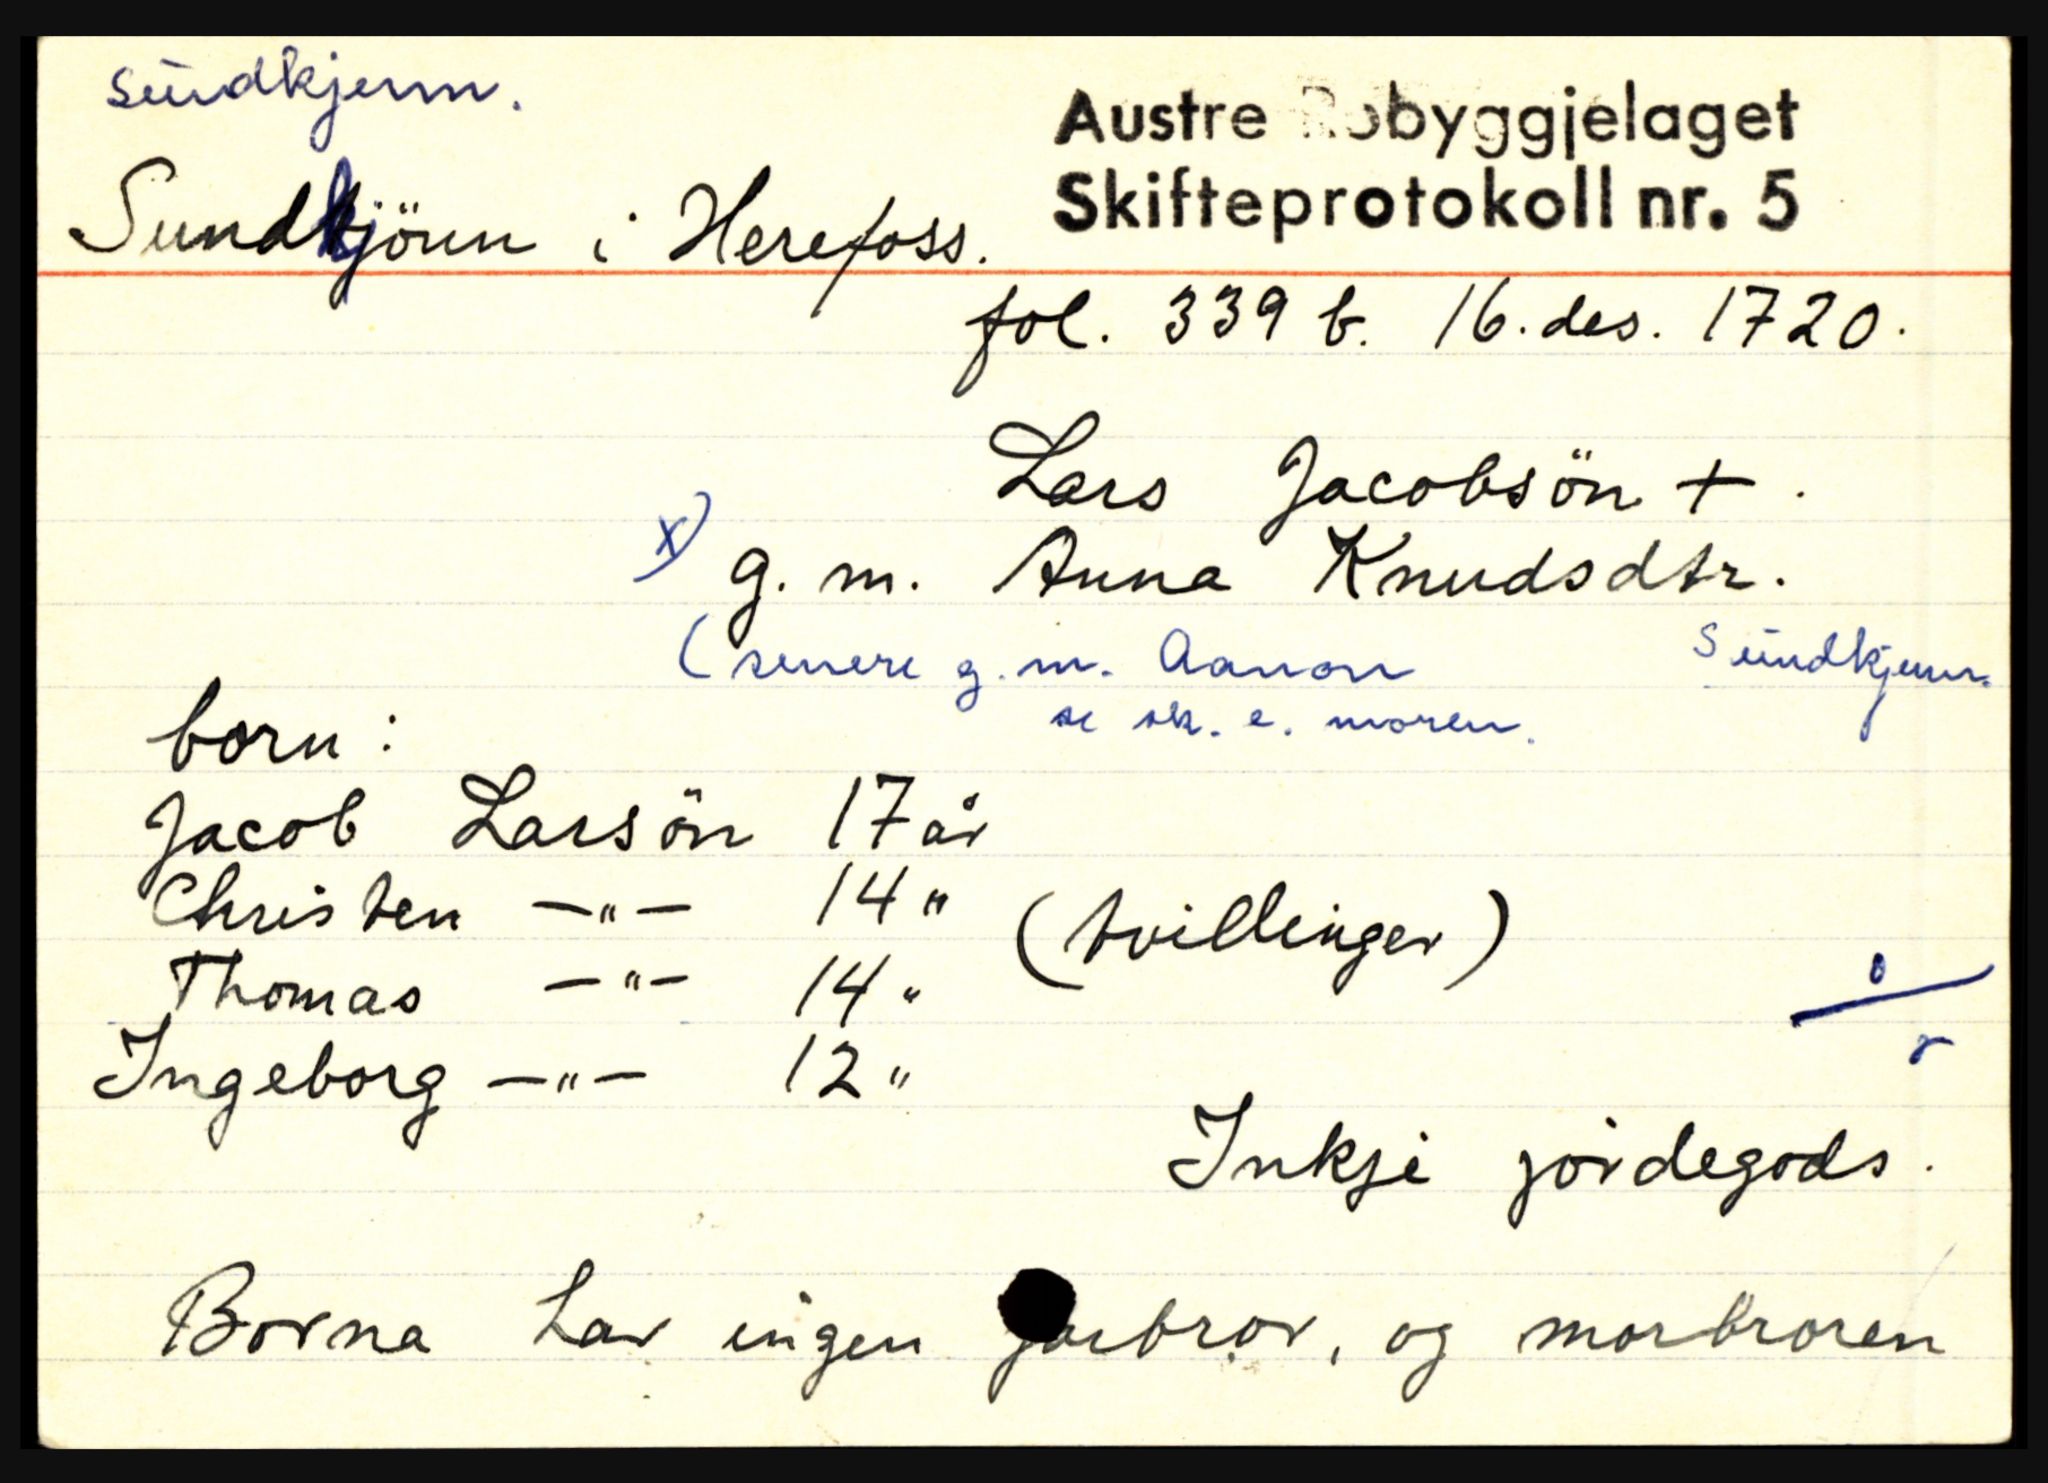 Sündkjenn.
Austre Robyggjelaget
Skifteprotokoll nr. 5
Sundkjönn i Herefoss.
fol. 339 b. 16. des. 1720.
Lars Jacobsön +.
x) g. m. Anna Knudsdtr.
(senere g. m. Aanon Sündkjenn.
se sk. e. moren.
born:
Jacob Larsön 17 år
Christen —"— 14 "
(tvillinger)
Thomas —"— 14 "
Ingeborg —"— 12 "
Inkje jördegods.
Borna har ingen farbror, og morbroren